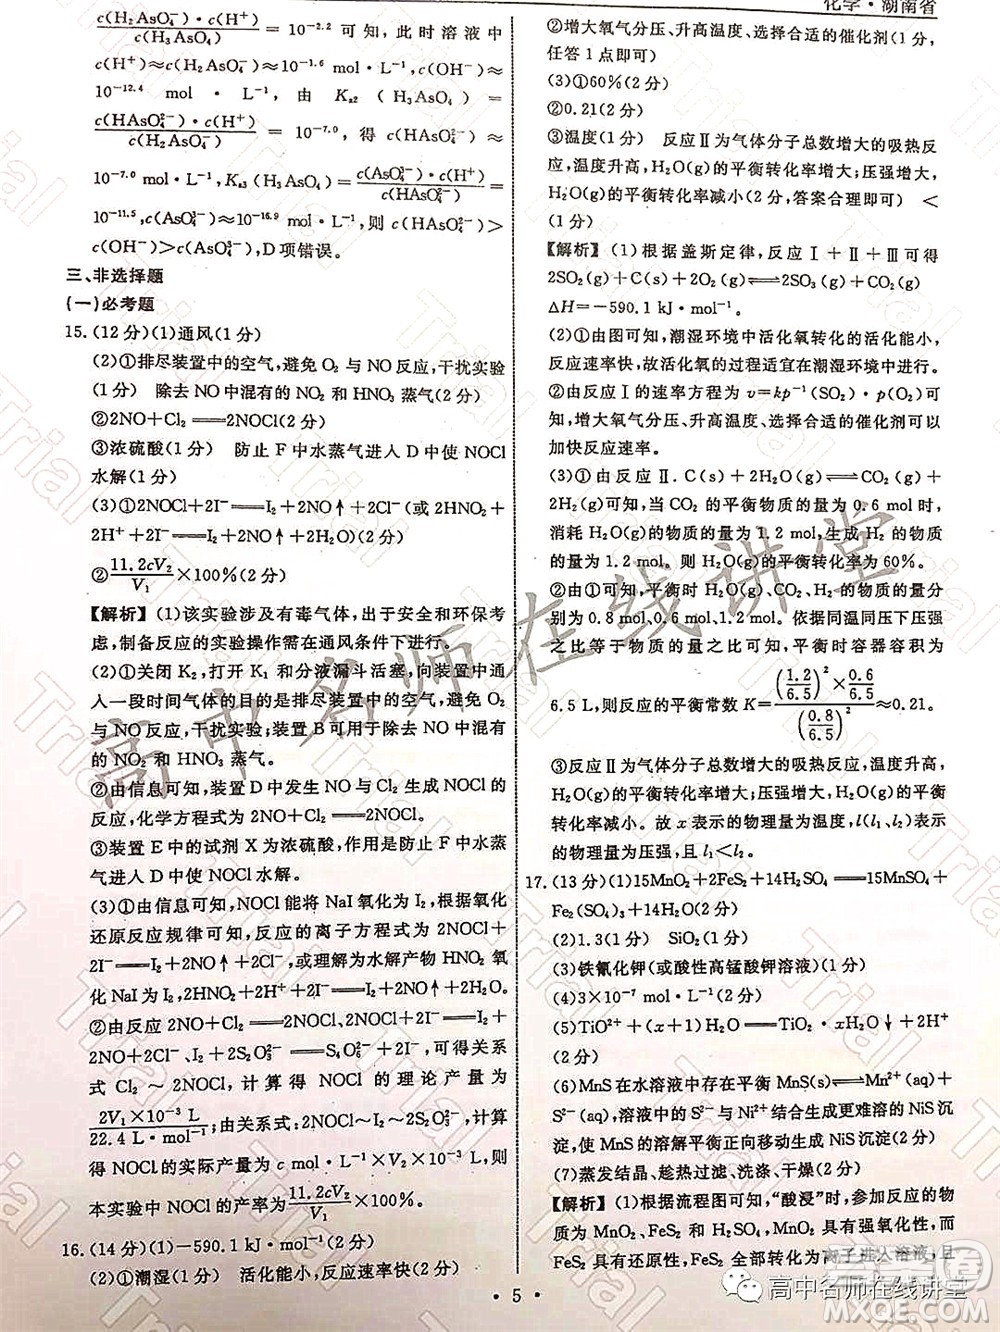 化学·湖南省
c(H⁺)·c(H₂AsO₄⁻)/c(H₃AsO₄)=10⁻²·² 可知，此时溶液中
c(H⁺)≈c(H₂AsO₄⁻)≈10⁻¹·⁶ mol·L⁻¹，c(OH⁻)≈
10⁻¹²·⁴ mol·L⁻¹，由 Kₐ₂(H₃AsO₄)=
c(HAsO₄²⁻)·c(H⁺)/c(H₂AsO₄⁻)=10⁻⁷·⁰，得 c(HAsO₄²⁻)≈
10⁻⁷·⁰ mol·L⁻¹，Kₐ₃(H₃AsO₄)=c(AsO₄³⁻)·c(H⁺)/c(HAsO₄²⁻)=
10⁻¹¹·⁵，c(AsO₄³⁻)≈10⁻¹⁶·⁹ mol·L⁻¹，则 c(HAsO₄²⁻)>
c(OH⁻)>c(AsO₄³⁻)，D项错误。
三、非选择题
(一)必考题
15.(12分)(1)通风(1分)
(2)①排尽装置中的空气，避免 O₂ 与 NO 反应，干扰实验
(1分) 除去 NO 中混有的 NO₂ 和 HNO₃ 蒸气(2分)
②2NO+Cl₂══2NOCl(2分)
③浓硫酸(1分) 防止 F 中水蒸气进入 D 中，使 NOCl
水解(1分)
(3)①2NOCl+2I⁻══I₂+2NO↑+2Cl⁻(或 2HNO₂+
2H⁺+2I⁻══I₂+2NO↑+2H₂O)(2分)
②11.2cV₂/V₁×100%(2分)
【解析】(1)该实验涉及有毒气体，出于安全和环保考
虑，制备反应的实验操作需在通风条件下进行。
(2)①关闭 K₂，打开 K₁ 和分液漏斗活塞，向装置中通
入一段时间气体的目的是排尽装置中的空气，避免 O₂
与 NO 反应，干扰实验；装置 B 可用于除去 NO 中混有
的 NO₂ 和 HNO₃ 蒸气。
②由信息可知，装置 D 中发生 NO 与 Cl₂ 生成 NOCl 的
反应，化学方程式为 2NO+Cl₂══2NOCl。
③装置 E 中的试剂 X 为浓硫酸，作用是防止 F 中水蒸
气进入 D 中，使 NOCl 水解。
(3)①由信息可知，NOCl 能将 NaI 氧化为 I₂，根据氧化
还原反应规律可知，反应的离子方程式为 2NOCl+
2I⁻══I₂+2NO↑+2Cl⁻；水解生成的 HNO₂ 也可氧
化 NaI 为 I₂：2HNO₂+2H⁺+2I⁻══I₂+2NO↑+2H₂O。
②由反应 2NO+Cl₂══2NOCl、2NOCl+2I⁻══I₂+
2NO↑+2Cl⁻、I₂+2S₂O₃²⁻══S₄O₆²⁻+2I⁻，可得关系
式 Cl₂～2NOCl，计算得 NOCl 的理论产量为
2V₁×10⁻³ L/22.4 L·mol⁻¹；由关系式：2NOCl～I₂～2S₂O₃²⁻，计算得
NOCl 的实际产量为 c mol·L⁻¹×V₂×10⁻³ L，所以
本实验中 NOCl 的产率为11.2cV₂/V₁×100%。
16.(14分)(1)−590.1 kJ·mol⁻¹(2分)
(2)①潮湿(1分) 活化能小，反应速率快(2分)
②增大氧气分压、升高温度、选择合适的催化剂(2分，
任答1点即可)
(3)①60%(2分)
②0.21(2分)
③温度(1分) 反应Ⅱ为气体分子总数增大的吸热反
应，温度升高，H₂O(g)的平衡转化率增大；压强增大，
H₂O(g)的平衡转化率减小(2分，答案合理即可) <
(1分)
【解析】(1)根据盖斯定律，反应Ⅰ+Ⅱ+Ⅲ可得
2SO₂(g)+C(s)+2O₂(g)⇌2SO₃(g)+CO₂(g)
ΔH=−590.1 kJ·mol⁻¹。
(2)①由图可知，潮湿环境中活化氧转化的活化能小，
反应速率快，故活化氧的过程适宜在潮湿环境中进行。
②由反应Ⅰ的速率方程为 v=kp⁻¹(SO₂)·p(O₂)可
知，增大氧气分压、升高温度、选择合适的催化剂可以
加快反应速率。
(3)①由反应Ⅱ.C(s)+2H₂O(g)⇌CO₂(g)+
2H₂(g)可知，当 CO₂ 的平衡物质的量为 0.6 mol 时，
消耗 H₂O 的物质的量为 1.2 mol，生成 H₂ 的物质
的量为 1.2 mol，H₂O(g)的平衡转化率为 60%。
②由①可知，平衡时 H₂O、CO₂、H₂ 的物质的量分
别为 0.8 mol、0.6 mol、1.2 mol。依据同温同压下压强
之比等于物质的量之比可知，平衡时容器容积为
6.5 L，则反应的平衡常数 K=(1.2/6.5)²×0.6/6.5/(0.8/6.5)²≈0.21。
③反应Ⅱ为气体分子总数增大的吸热反应，温度升高，
H₂O(g)的平衡转化率增大；压强增大，H₂O(g)的平衡
转化率减小。故 x 表示的物理量为温度，l(l₁、l₂)表示
的物理量为压强，且 l₁<l₂。
17.(13分)(1)15MnO₂+2FeS₂+14H₂SO₄══15MnSO₄+
Fe₂(SO₄)₃+14H₂O(2分)
(2)1.3(1分) SiO₂(1分)
(3)铁氰化钾(或酸性高锰酸钾溶液)(1分)
(4)3×10⁻⁷ mol·L⁻¹(2分)
(5)TiO²⁺+(x+1)H₂O══TiO₂·xH₂O↓+2H⁺
(2分)
(6)MnS 在水溶液中存在平衡 MnS(s)⇌Mn²⁺(aq)+
S²⁻(aq)，溶液中的 Ni²⁺ 与 S²⁻ 结合生成更难溶的 NiS 沉
淀，使 MnS 的溶解平衡正向移动生成 NiS 沉淀(2分)
(7)蒸发结晶、趁热过滤、洗涤、干燥(2分)
【解析】(1)根据流程图可知，“酸浸”时，参加反应的物
质为 MnO₂、FeS₂ 和 H₂SO₄，MnO₂ 具有强氧化性，而
FeS₂ 具有强还原性，
离子进入溶液，且
·5·
高中名师在线讲堂
高中名师在线讲堂
MXQE.COM
Trial